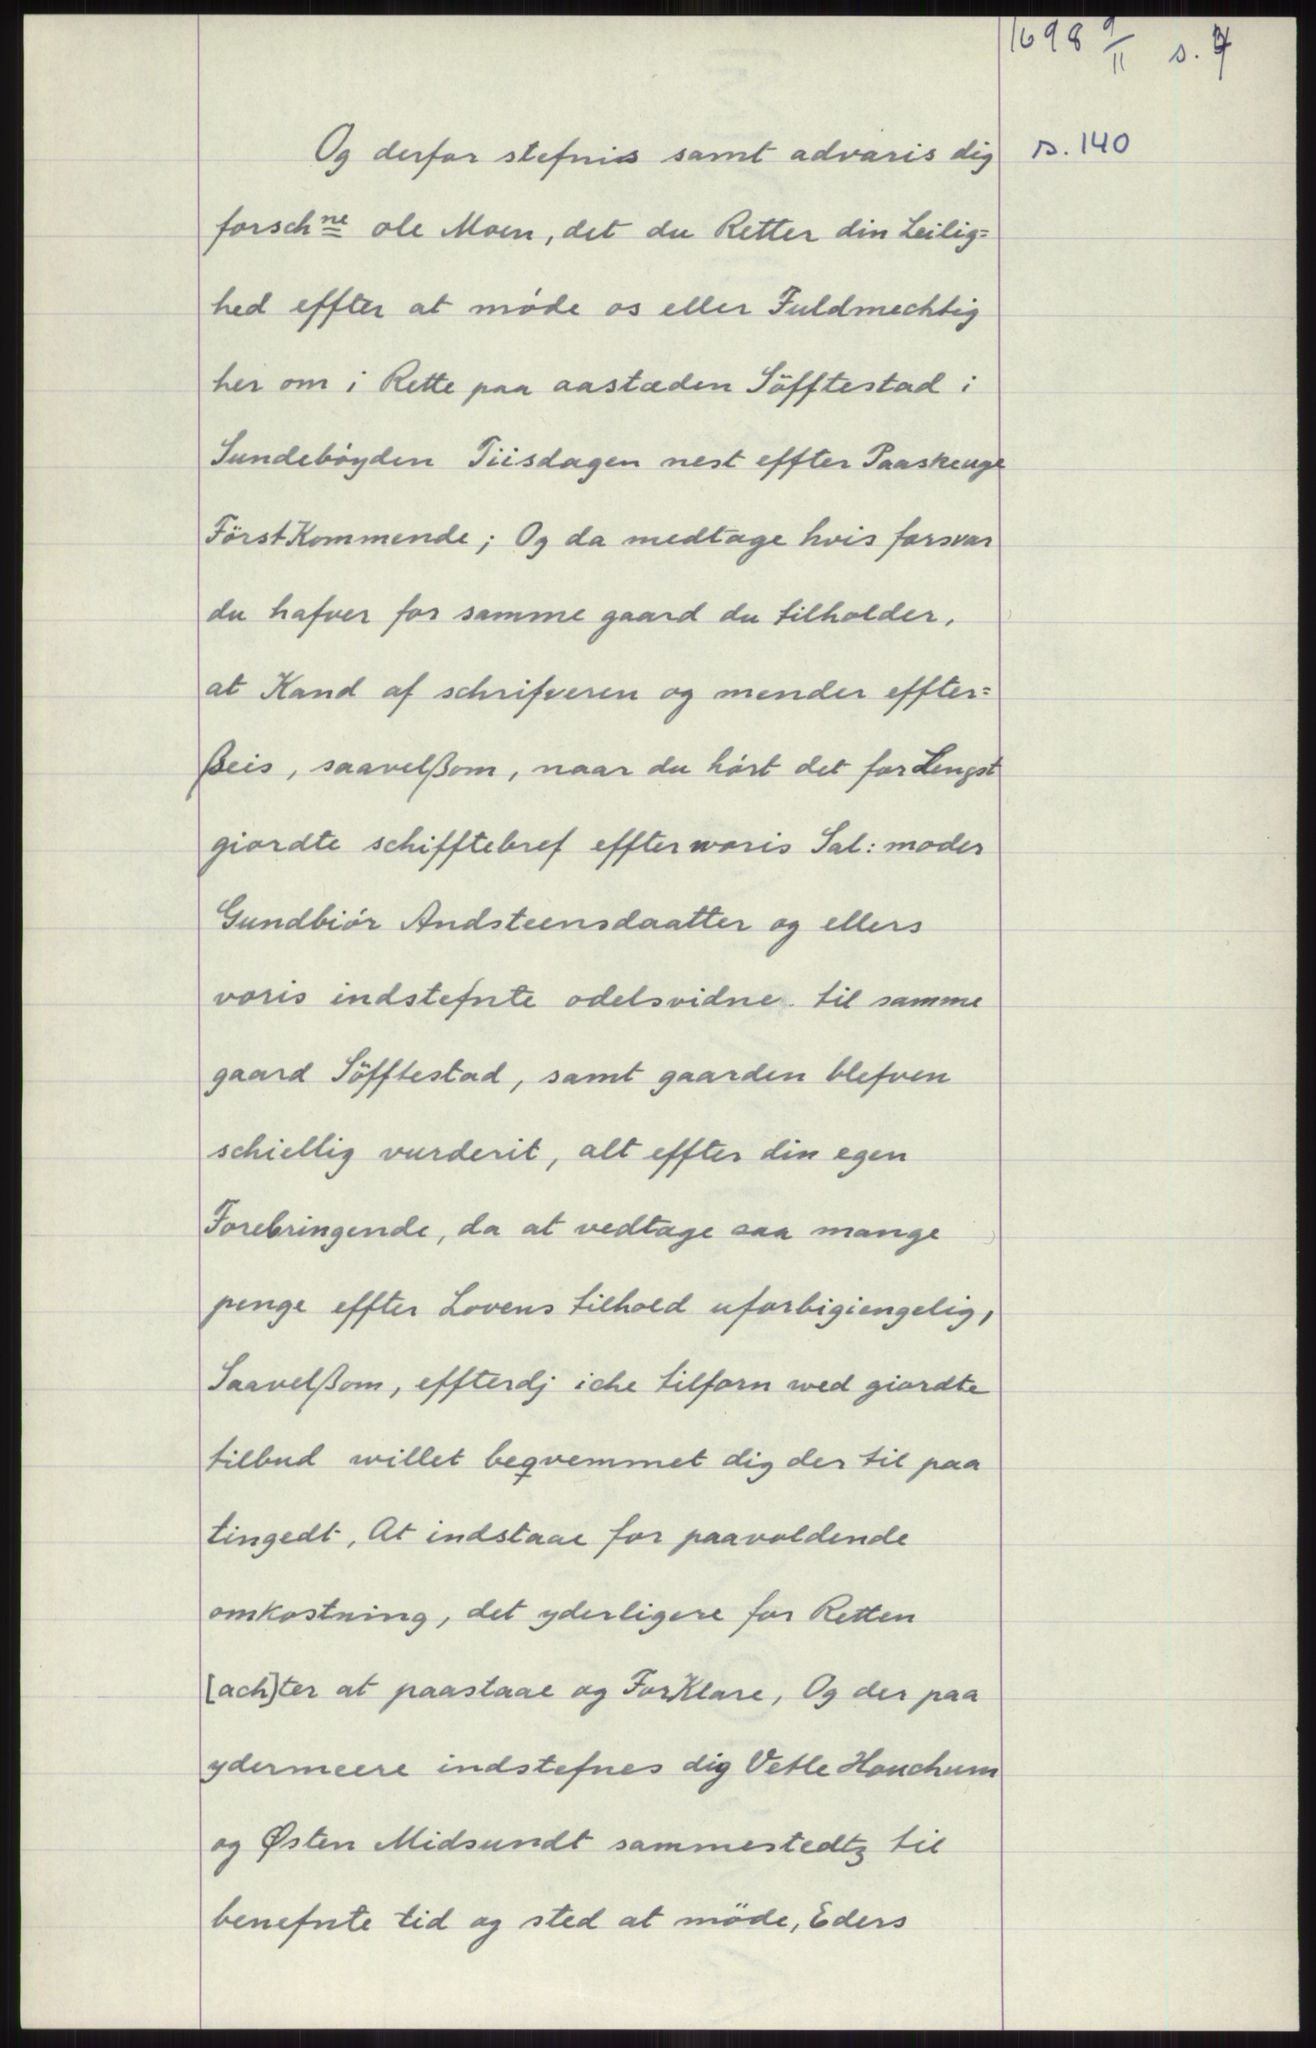 1698 9/11 s. 4
Og derfor stefnis samt advaris dig s. 140
forschne ole Moen, det du Retter din Leilig=
hed effter at møde os eller Fuldmechtig
her om i Rette paa aastæden Söfftestad i
Sundebøyden Tiisdagen nest effter Paaskeuge
FörstKommende; Og da medtage hvis forsvar
du hafver for samme gaard du tilholder,
at Kand af schrifveren og mender effter=
ßeis, saavelßom, naar du hört det for Lengst
giordte schifftebref effter woris Sal: moder
Gundbiör Andsteensdaatter og ellers
voris indstefnte odelsvidne til samme
gaard Söfftestad, samt gaarden blefven
schiellig vurderit, alt effter din egen
Forebringende, da at vedtage saa mange
penge effter Lovens tilhold uforbigiengelig,
Saavelßom, effterdj iche tilforn wed giordte
tilbud willet beqvemmet dig der til paa
tingedt, At indstaae for paavoldende
omkostning, det yderligere for Retten
[ach]ter at paastaae og ForKlare, Og der paa
ydermeere indstefnes dig Vetle Houchum
og Østen Midsundt sammestedtz til
benefnte tid og sted at möde, Eders